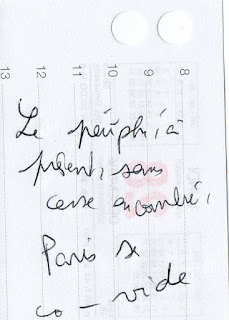 8
9
10
11
12
13
Le périph, à
présent, sans
cesse encombré,
Paris se
co-vide